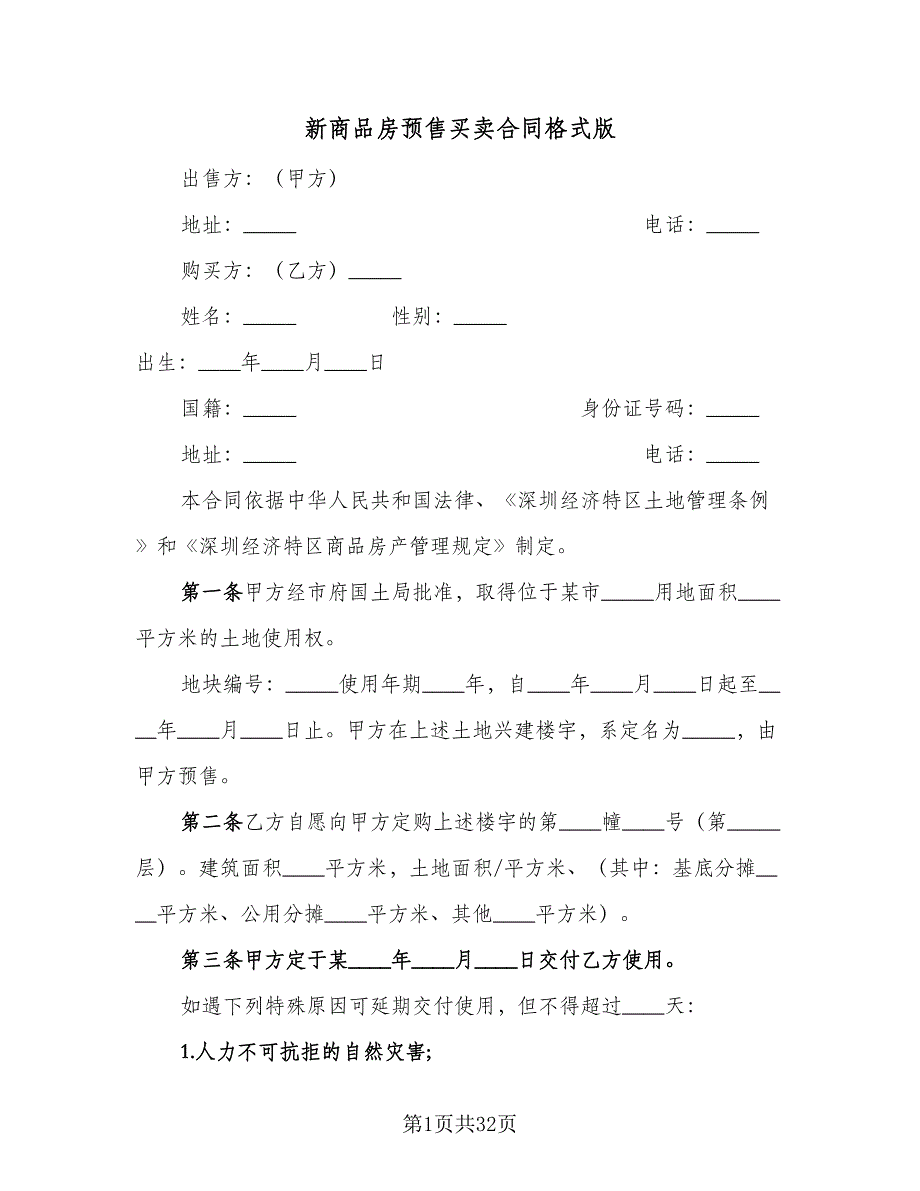 新商品房预售买卖合同格式版
出售方：（甲方）
地址：_____ 电话：_____
购买方：（乙方）_____
姓名：_____ 性别：_____
出生：____年____月____日
国籍：_____ 身份证号码：_____
地址：_____ 电话：_____
本合同依据中华人民共和国法律、《深圳经济特区土地管理条例
》和《深圳经济特区商品房产管理规定》制定。
第一条甲方经市府国土局批准，取得位于某市_____用地面积____
平方米的土地使用权。
地块编号：_____使用年期____年，自____年____月____日起至__
__年____月____日止。甲方在上述土地兴建楼宇，系定名为_____，由
甲方预售。
第二条乙方自愿向甲方定购上述楼宇的第____幢____号（第_____
层）。建筑面积____平方米，土地面积/平方米、（其中：基底分摊__
__平方米、公用分摊____平方米、其他____平方米）。
第三条甲方定于某____年____月____日交付乙方使用。
如遇下列特殊原因可延期交付使用，但不得超过____天：
1.人力不可抗拒的自然灾害;
第1页共32页